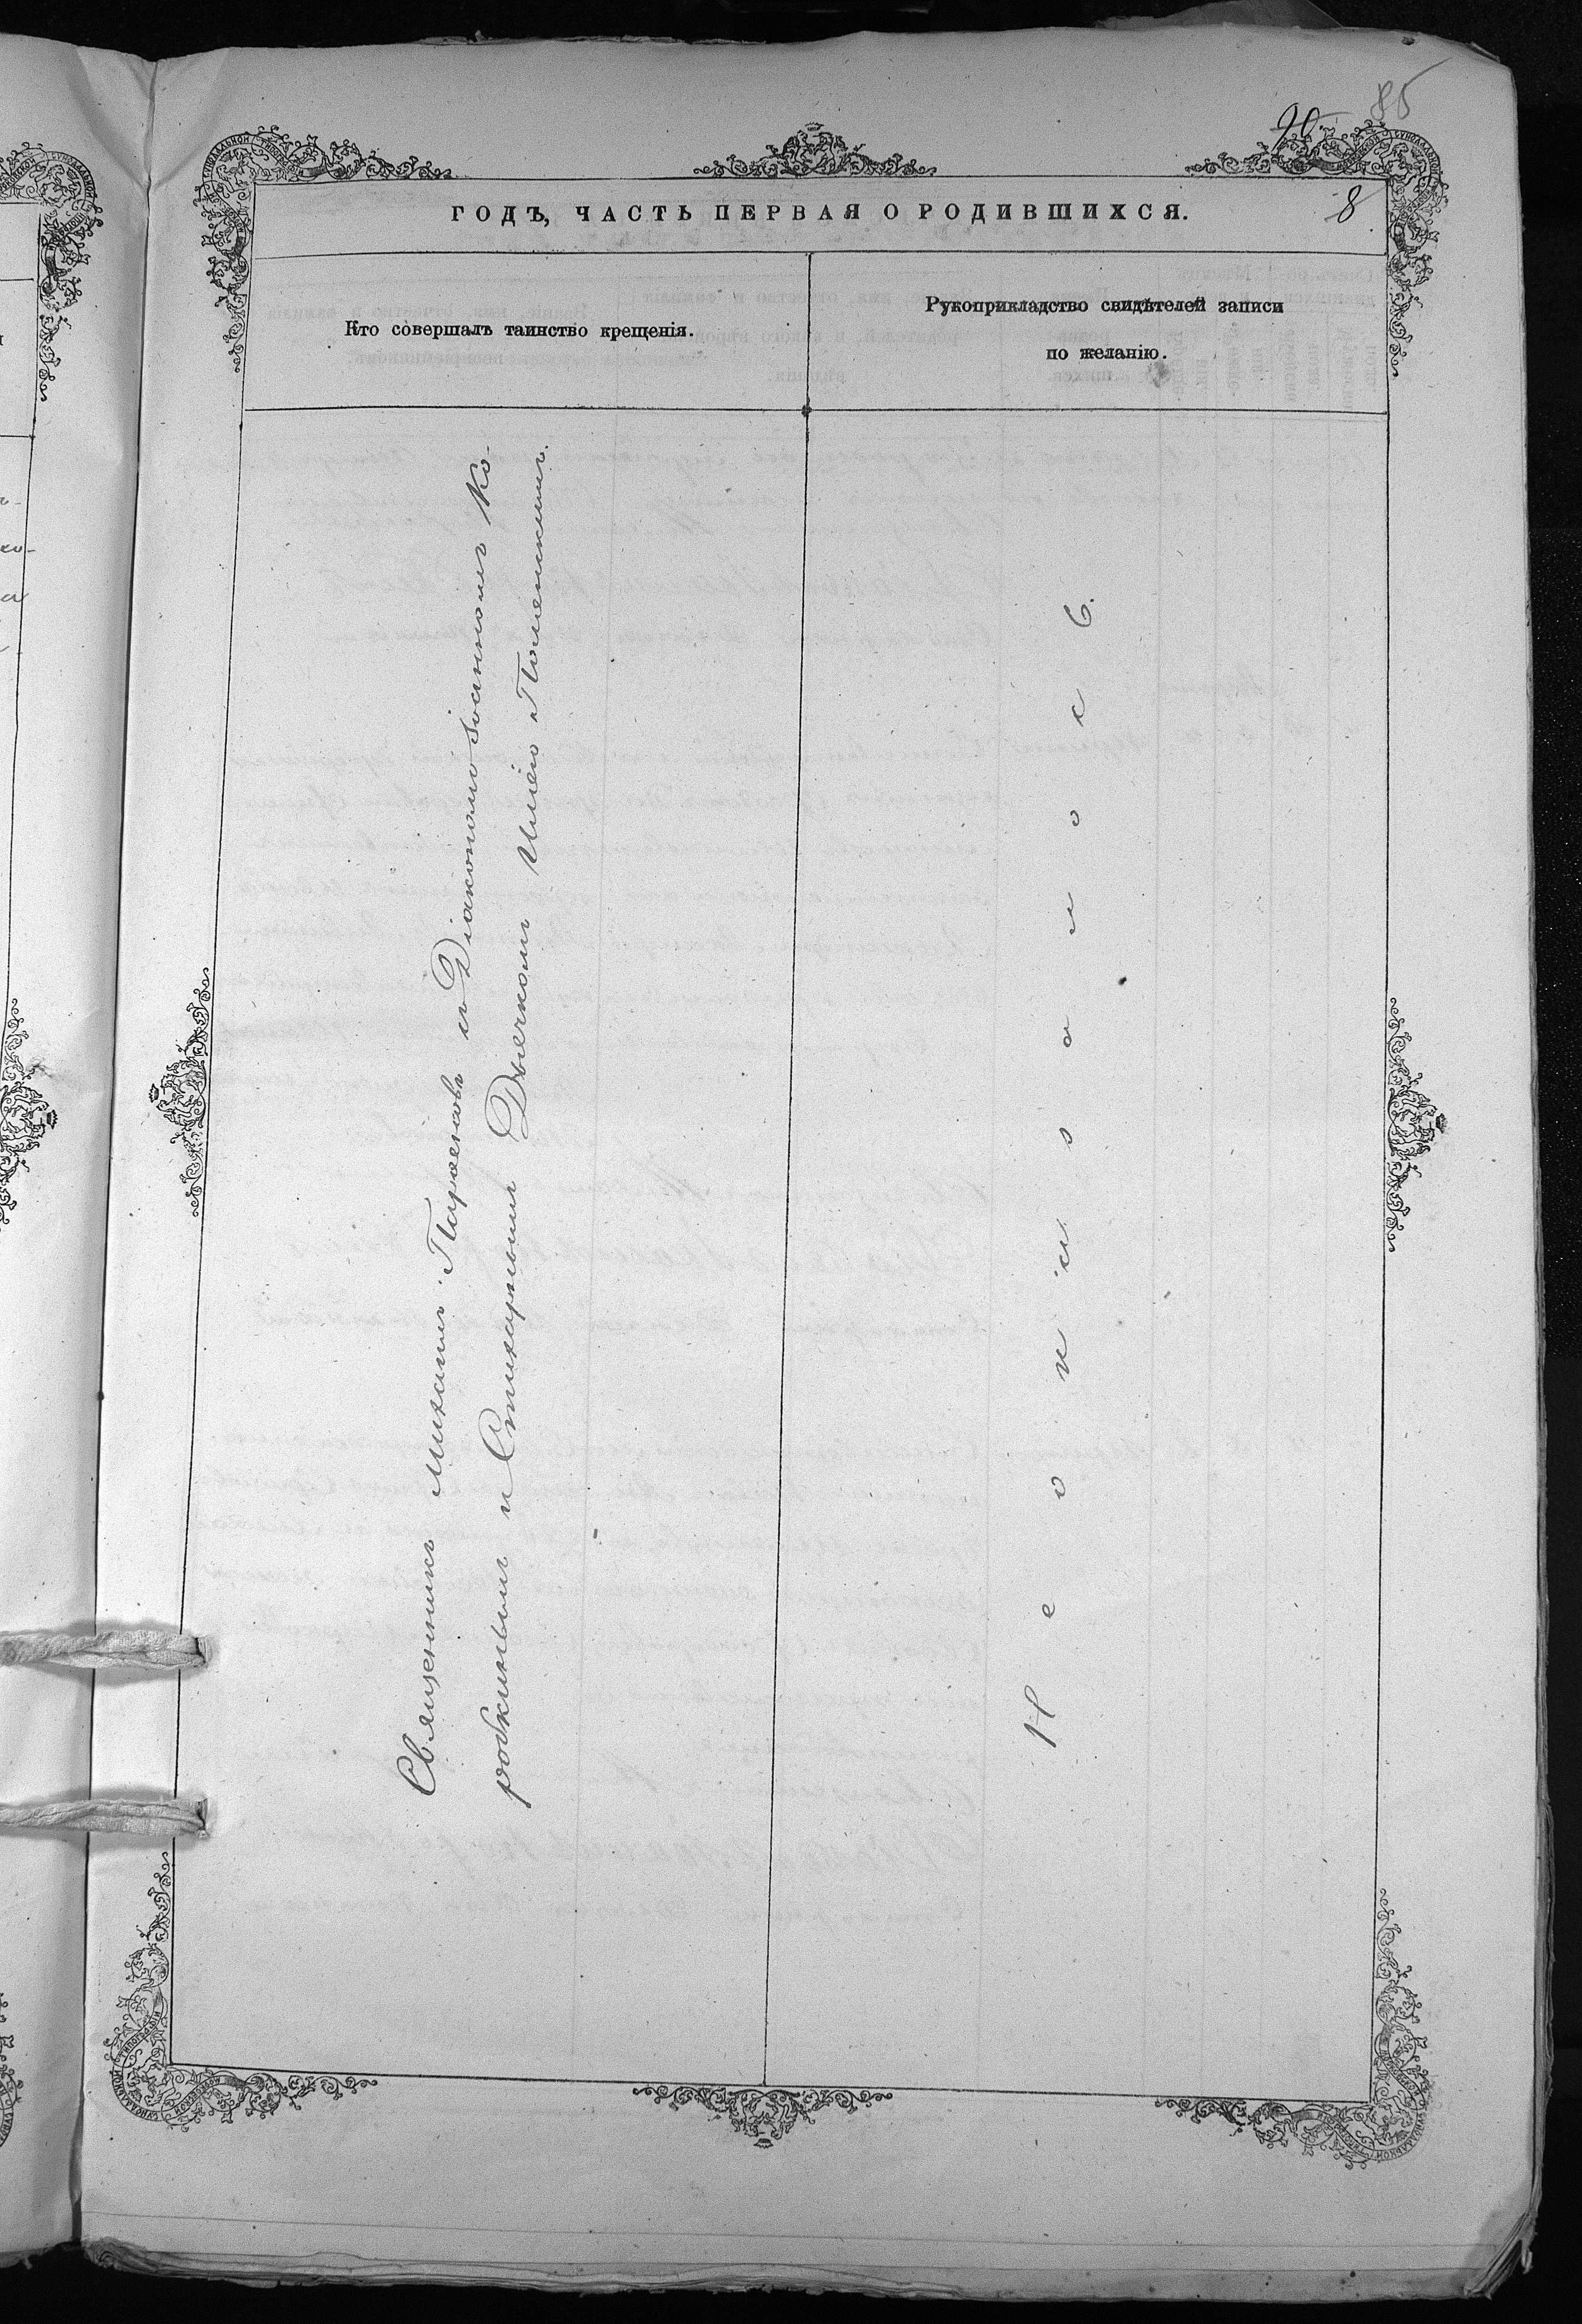 85
90
8
ГОДЪ, ЧАСТЬ ПЕРВАЯ О РОДИВШИХСЯ.
Кто совершалъ таинство крещенія.
Рукоприкладство свидѣтелей записи
по желанію.
Священникъ Михаилъ съ Діакономъ Іоанномъ Ко-
робкинымъ и Стихарнымъ Дьячкомъ
Н е о к и з а л о с ь.